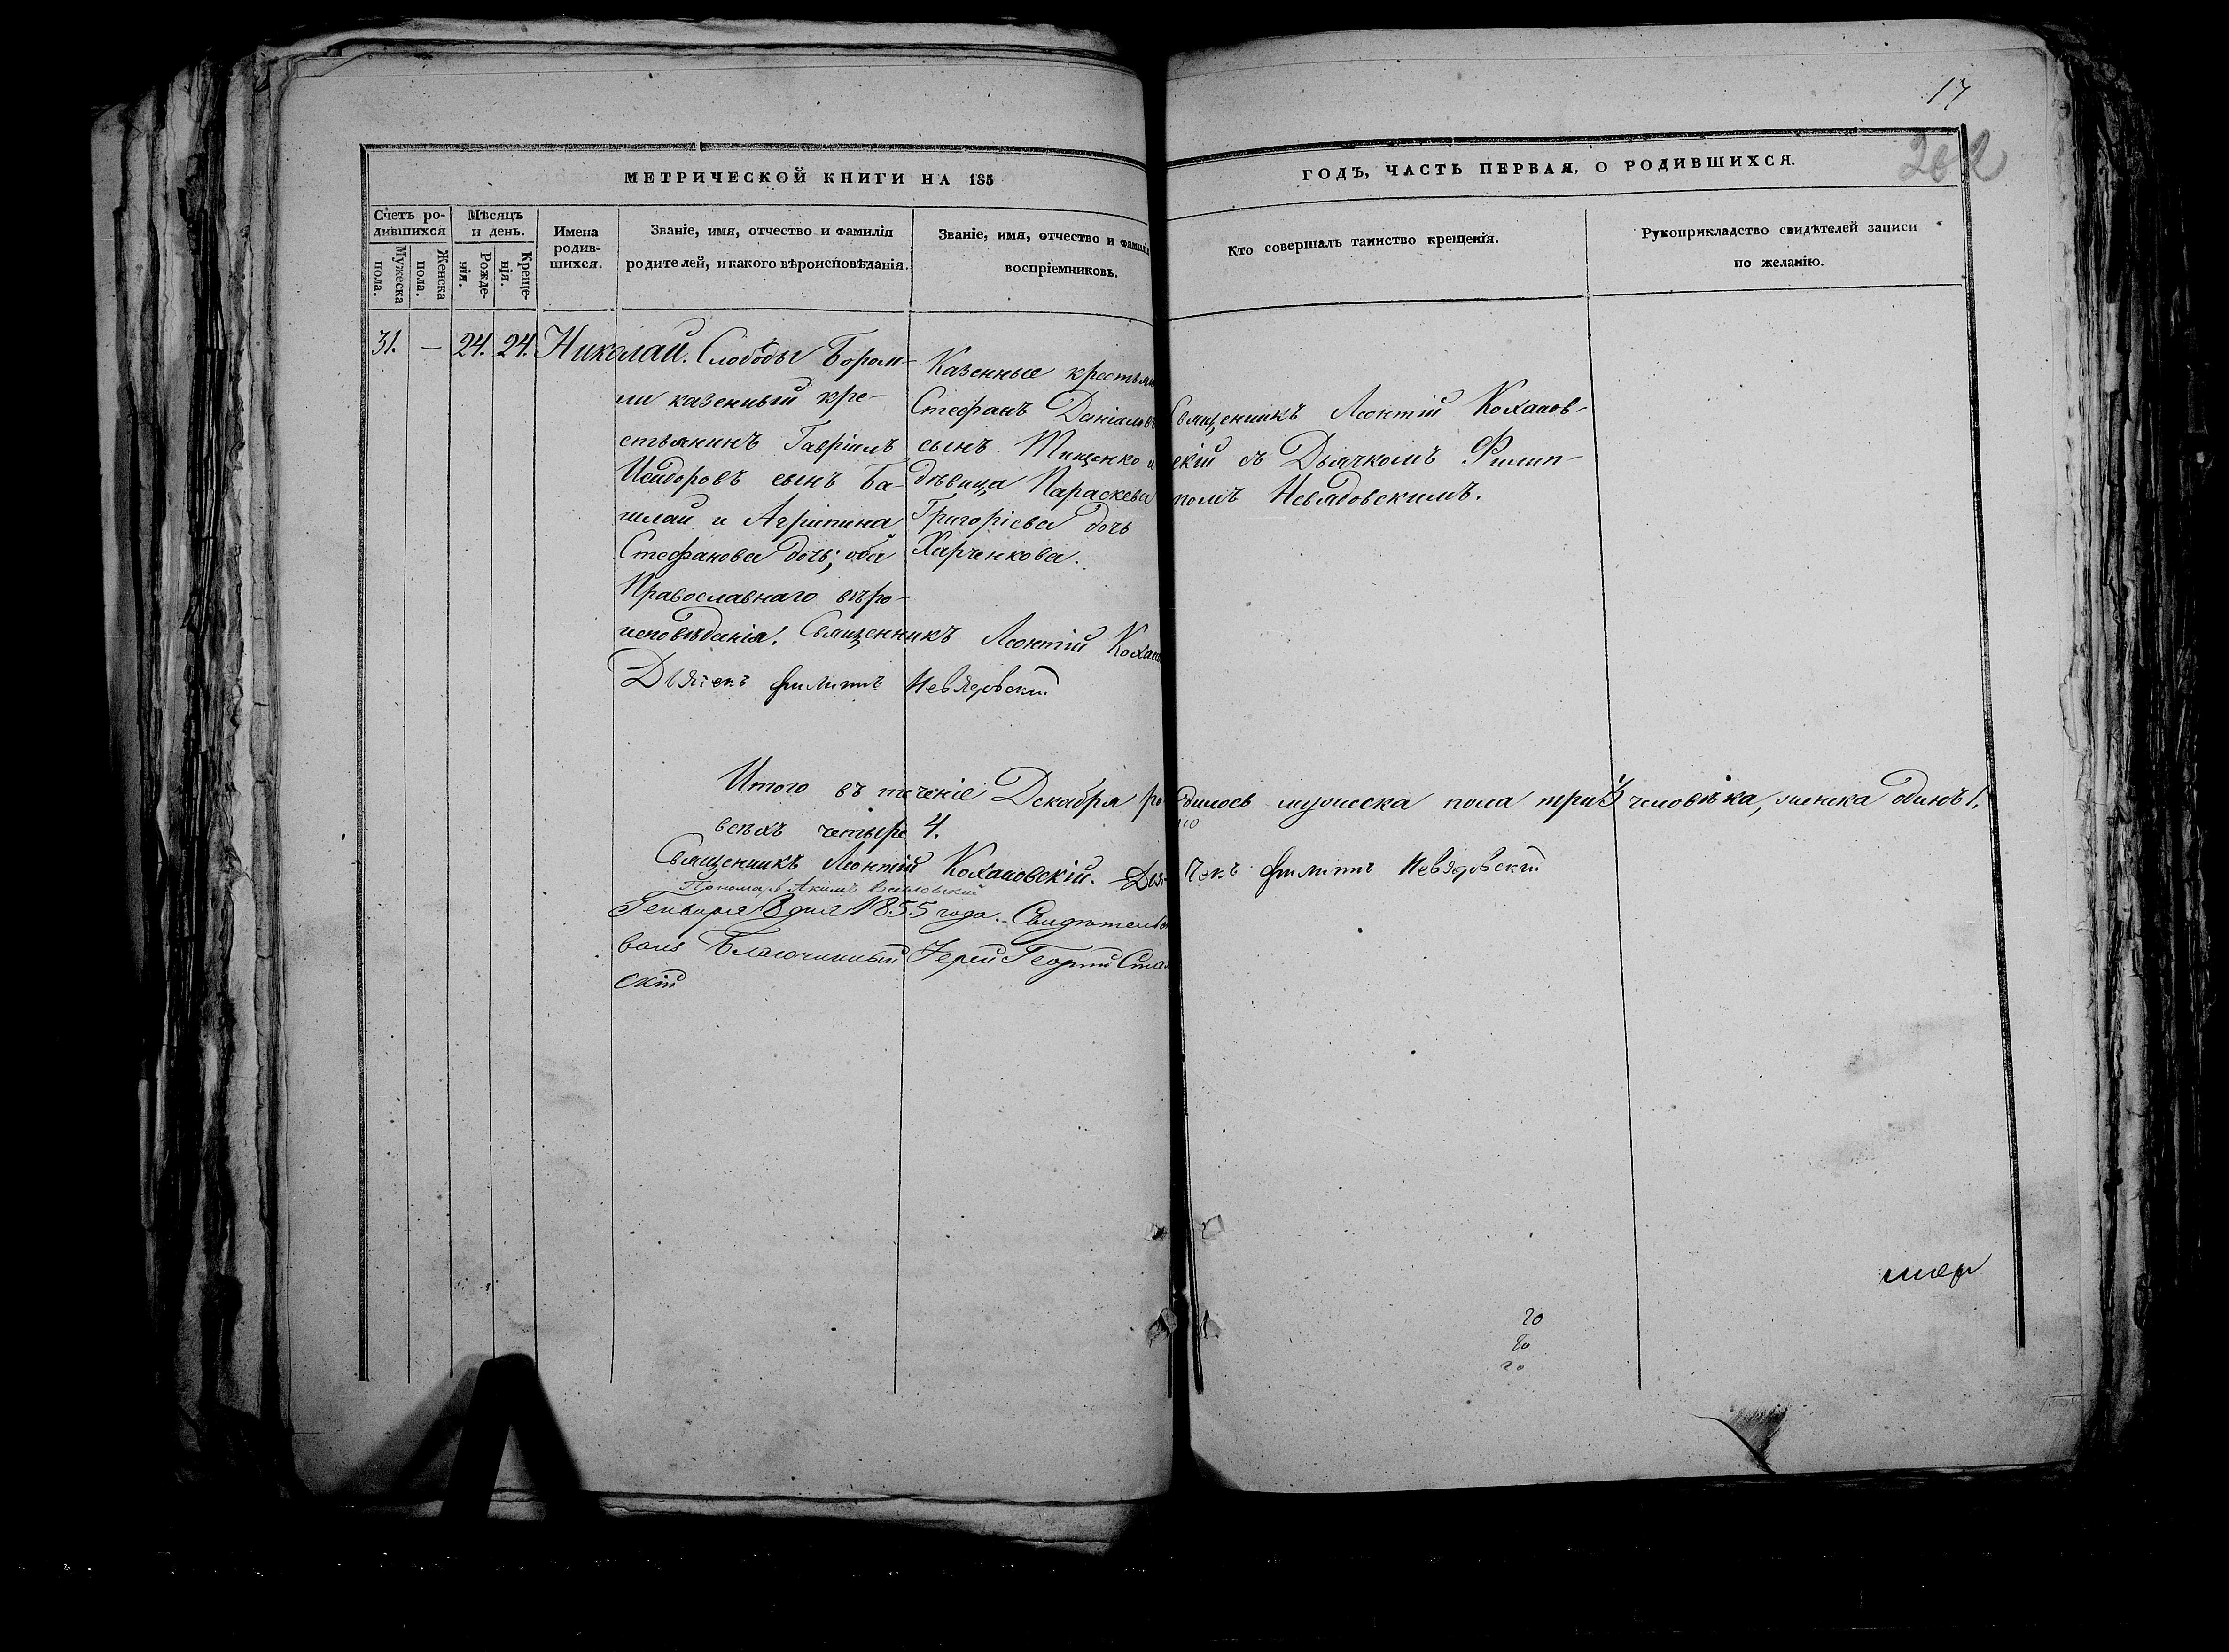 17
262
МЕТРИЧЕСКОЙ КНИГИ НА 185
ГОДЪ, ЧАСТЬ ПЕРВАЯ, О РОДИВШИХСЯ.
Счетъ ро-
дившихся
Мужеска
пола.
Женска
пола.
Мѣсяцъ
и день.
Рожде-
нія.
Креще-
нія.
Имена
родив-
шихся.
Званіе, имя, отчество и фамилія
родителей, и какого вѣроисповѣданія.
Званіе, имя, отчество и фамилія
воспріемниковъ.
Кто совершалъ таинство крещенія.
Рукоприкладство свидѣтелей записи
по желанію.
31. — 24. 24. Николай.
Слободы Бором-
ли казенный кре-
стьянинъ Гавріилъ
Исидоровъ сынъ Ба-
шлай и Агрипина
Стефанова дочь; оба
Православнаго вѣро-
исповѣданія. Священникъ Леонтій Кохан
Дьячекъ Филиппъ Невядовскій
Казенные крестьян
Стефанъ Даніиловъ
сынъ Тищенко и
дѣвица Параскева
Григоріева дочь
Харченкова.
Священникъ Леонтій Коханов-
скій съ Дьячкомъ Филип-
помъ Невядовскимъ.
Итого въ теченіе Декабря родилось мужеска пола три 3 человѣка, женска одинъ 1,
всѣхъ четыре 4.
Священникъ Леонтій Кохановскій. Дьячекъ Филиппъ Невядовскій
Пономарь Акимъ
Генваря 8 дня 1855 года. Свидѣтельство
валъ Благочинный Іерей Георгій Ста
скій
20
20